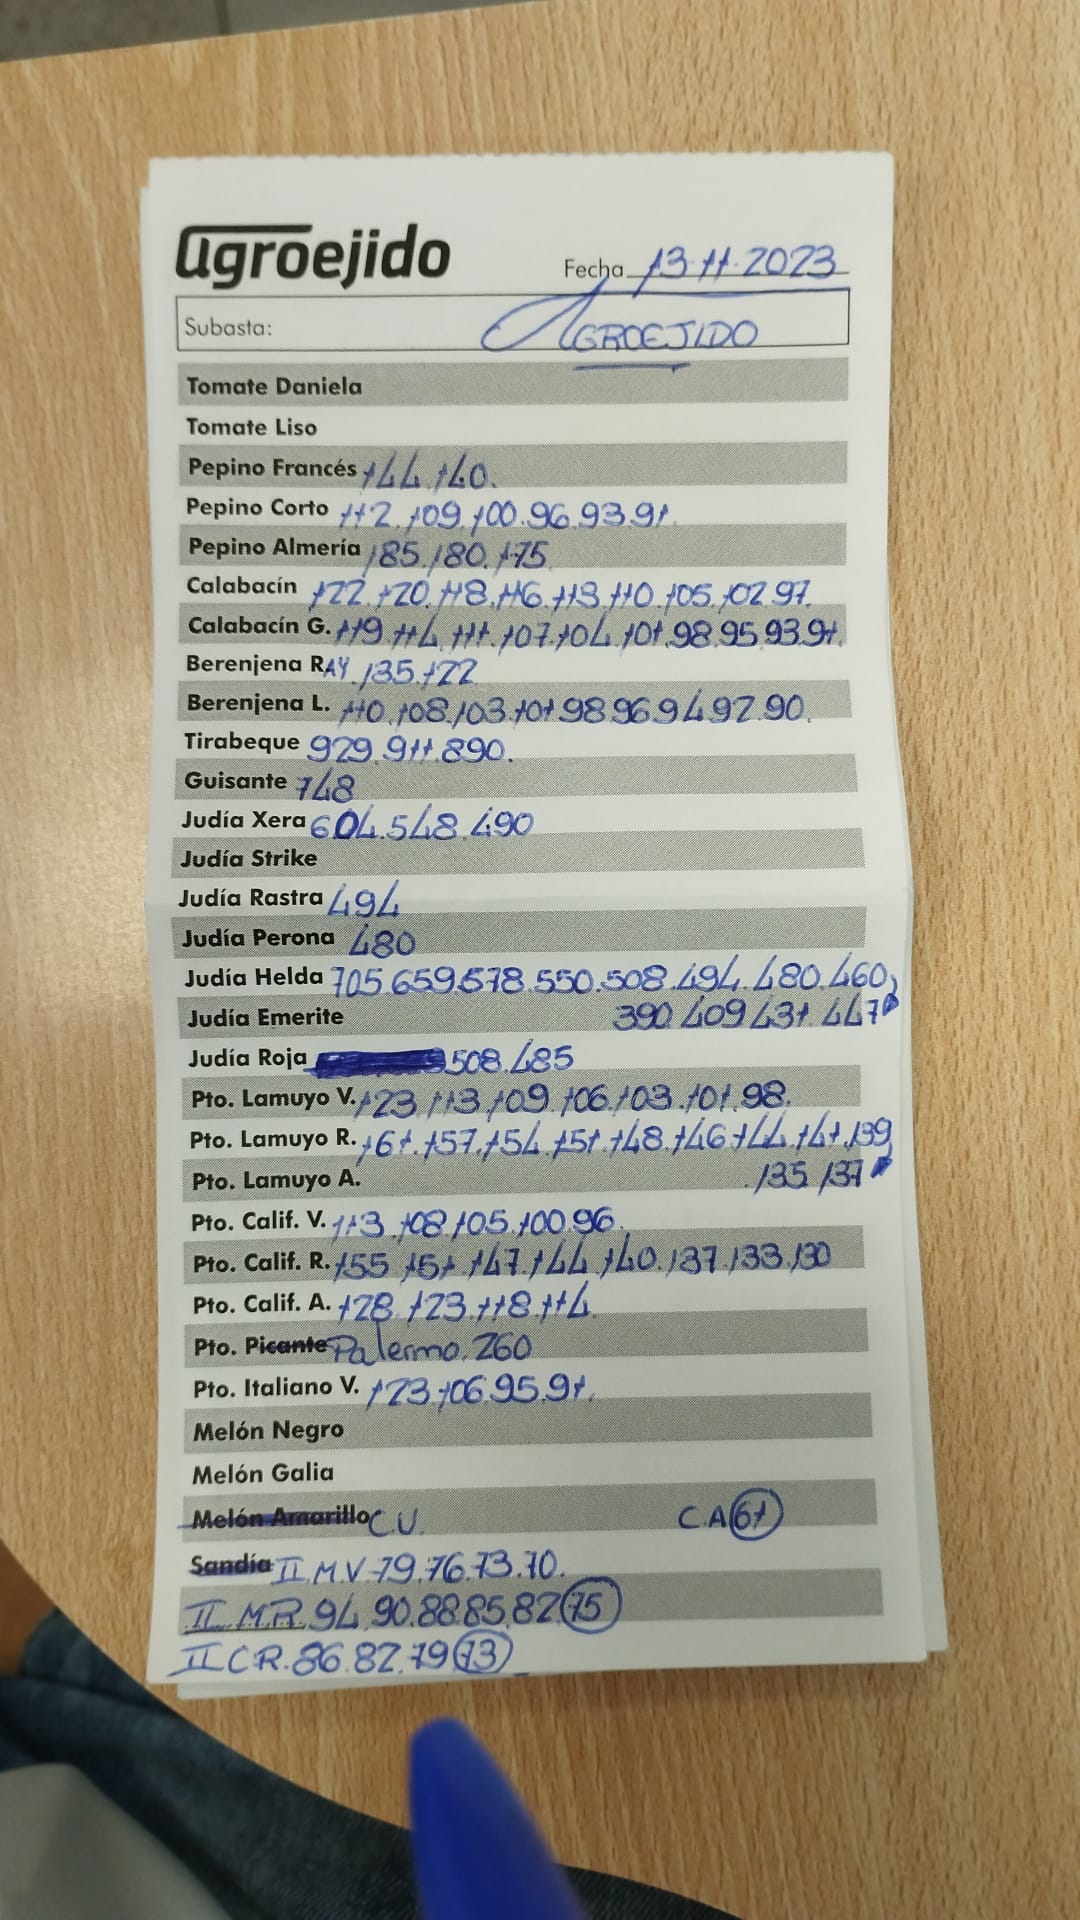 agroejido
Fecha 13.11.2023
Subasta: AGROEJIDO
Tomate Daniela
Tomate Liso
Pepino Francés 144.140.
Pepino Corto 112.109.100.96.93.91.
Pepino Almería 185.180.175
Calabacín 122.120.118.116.113.110.105.102.97.
Calabacín G. 119.114.111.107.104.101.98.95.93.91.
Berenjena RAY.135.122
Berenjena L. 110.108.103.101.98.96.94.92.90.
Tirabeque 929.911.890.
Guisante 748
Judía Xera 604.548.490
Judía Strike
Judía Rastra 494
Judía Perona 480
Judía Helda 705.659.578.550.508.494.480.460
Judía Emerite 390.409.431.447
Judía Roja 508.485
Pto. Lamuyo V. 123.113.109.106.103.101.98.
Pto. Lamuyo R. 161.157.154.151.148.146.144.141.139
Pto. Lamuyo A. .135.137
Pto. Calif. V. 113.108.105.100.96.
Pto. Calif. R. 155.151.147.144.140.137.133.130
Pto. Calif. A. 128.123.118.114.
Pto. Picante Palermo.260
Pto. Italiano V. 123.106.95.91.
Melón Negro
Melón Galia
Melón Amarillo C.V. C.A 61
Sandía II.M.V.79.76.73.70.
II.M.R.94.90.88.85.82 75
II C.R.86.82.79 73